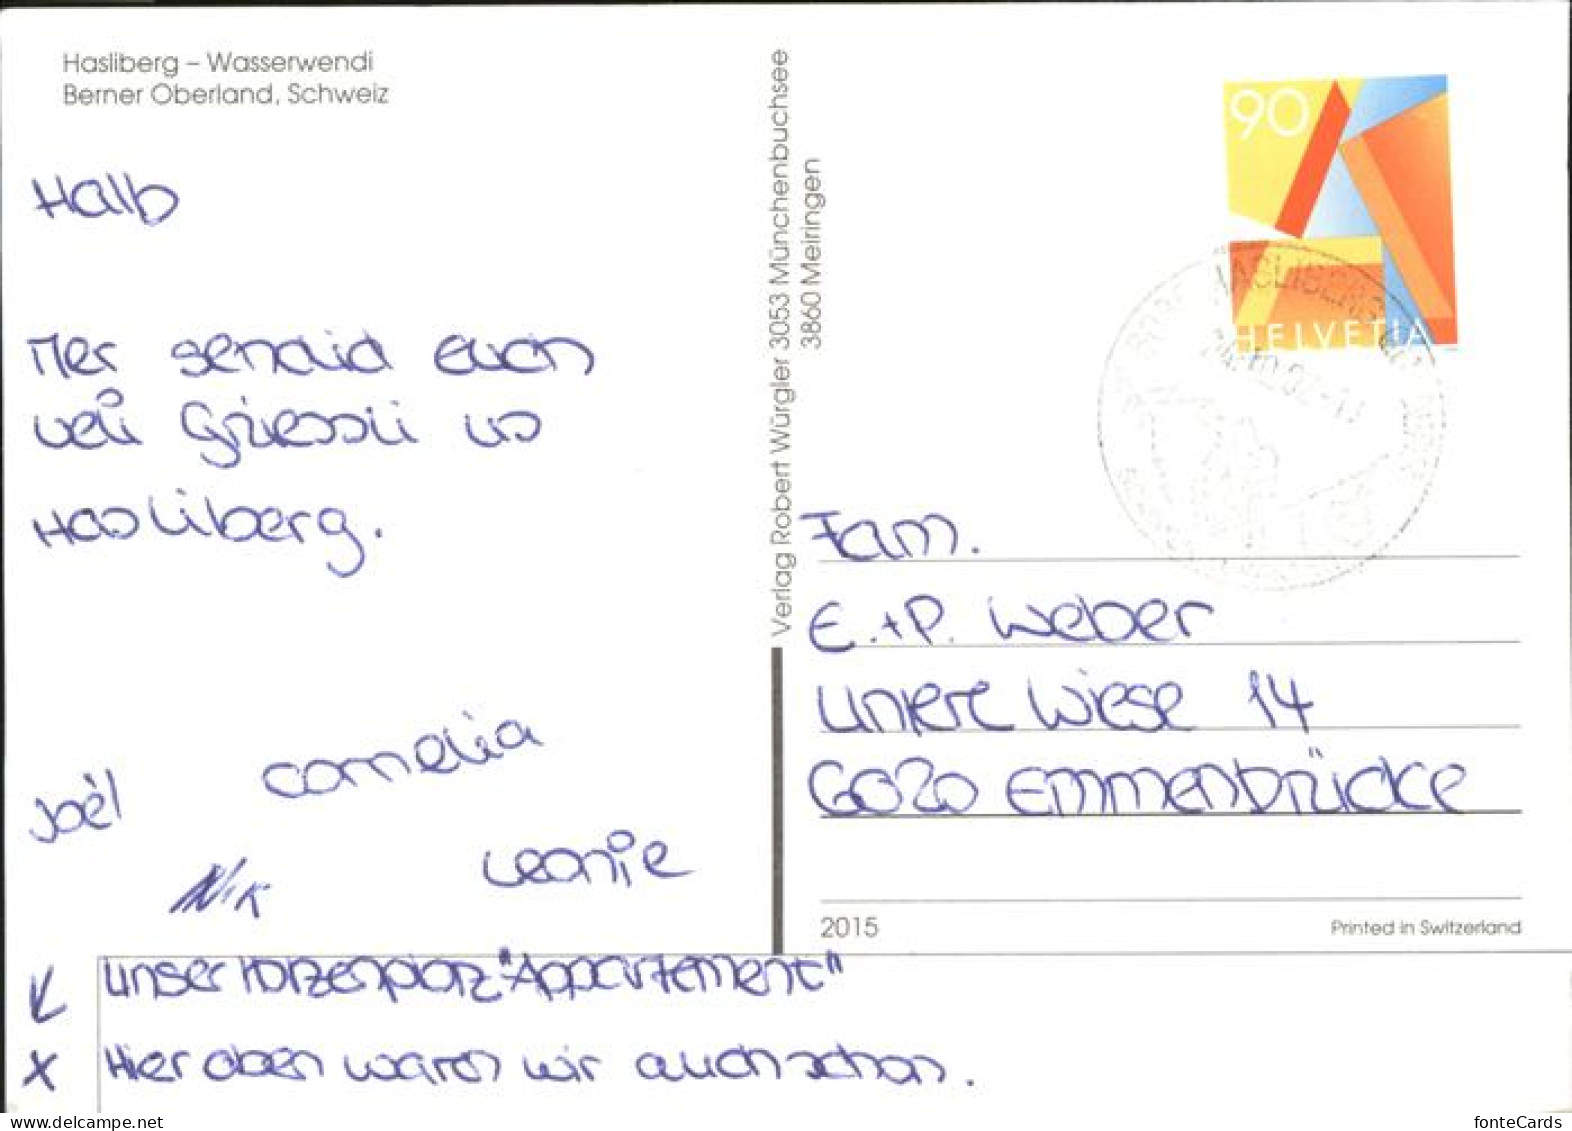 Hasliberg – Wasserwendi
Berner Oberland, Schweiz
Halb
Mer sendid Euch
veli Grüessli us
Hasliberg.
Joël
Cornelia
Nik
Leonie
Verlag Robert Würgler 3053 Münchenbuchsee
3860 Meiringen
90
HELVETIA
HASLIBERG
Fam.
E.+P. Weber
Untere Wiese 14
6020 Emmenbrücke
2015
Printed in Switzerland
↙ unser "Appartement"
x Hier oben waren wir auch schon.
www.delcampe.net
fonteCards